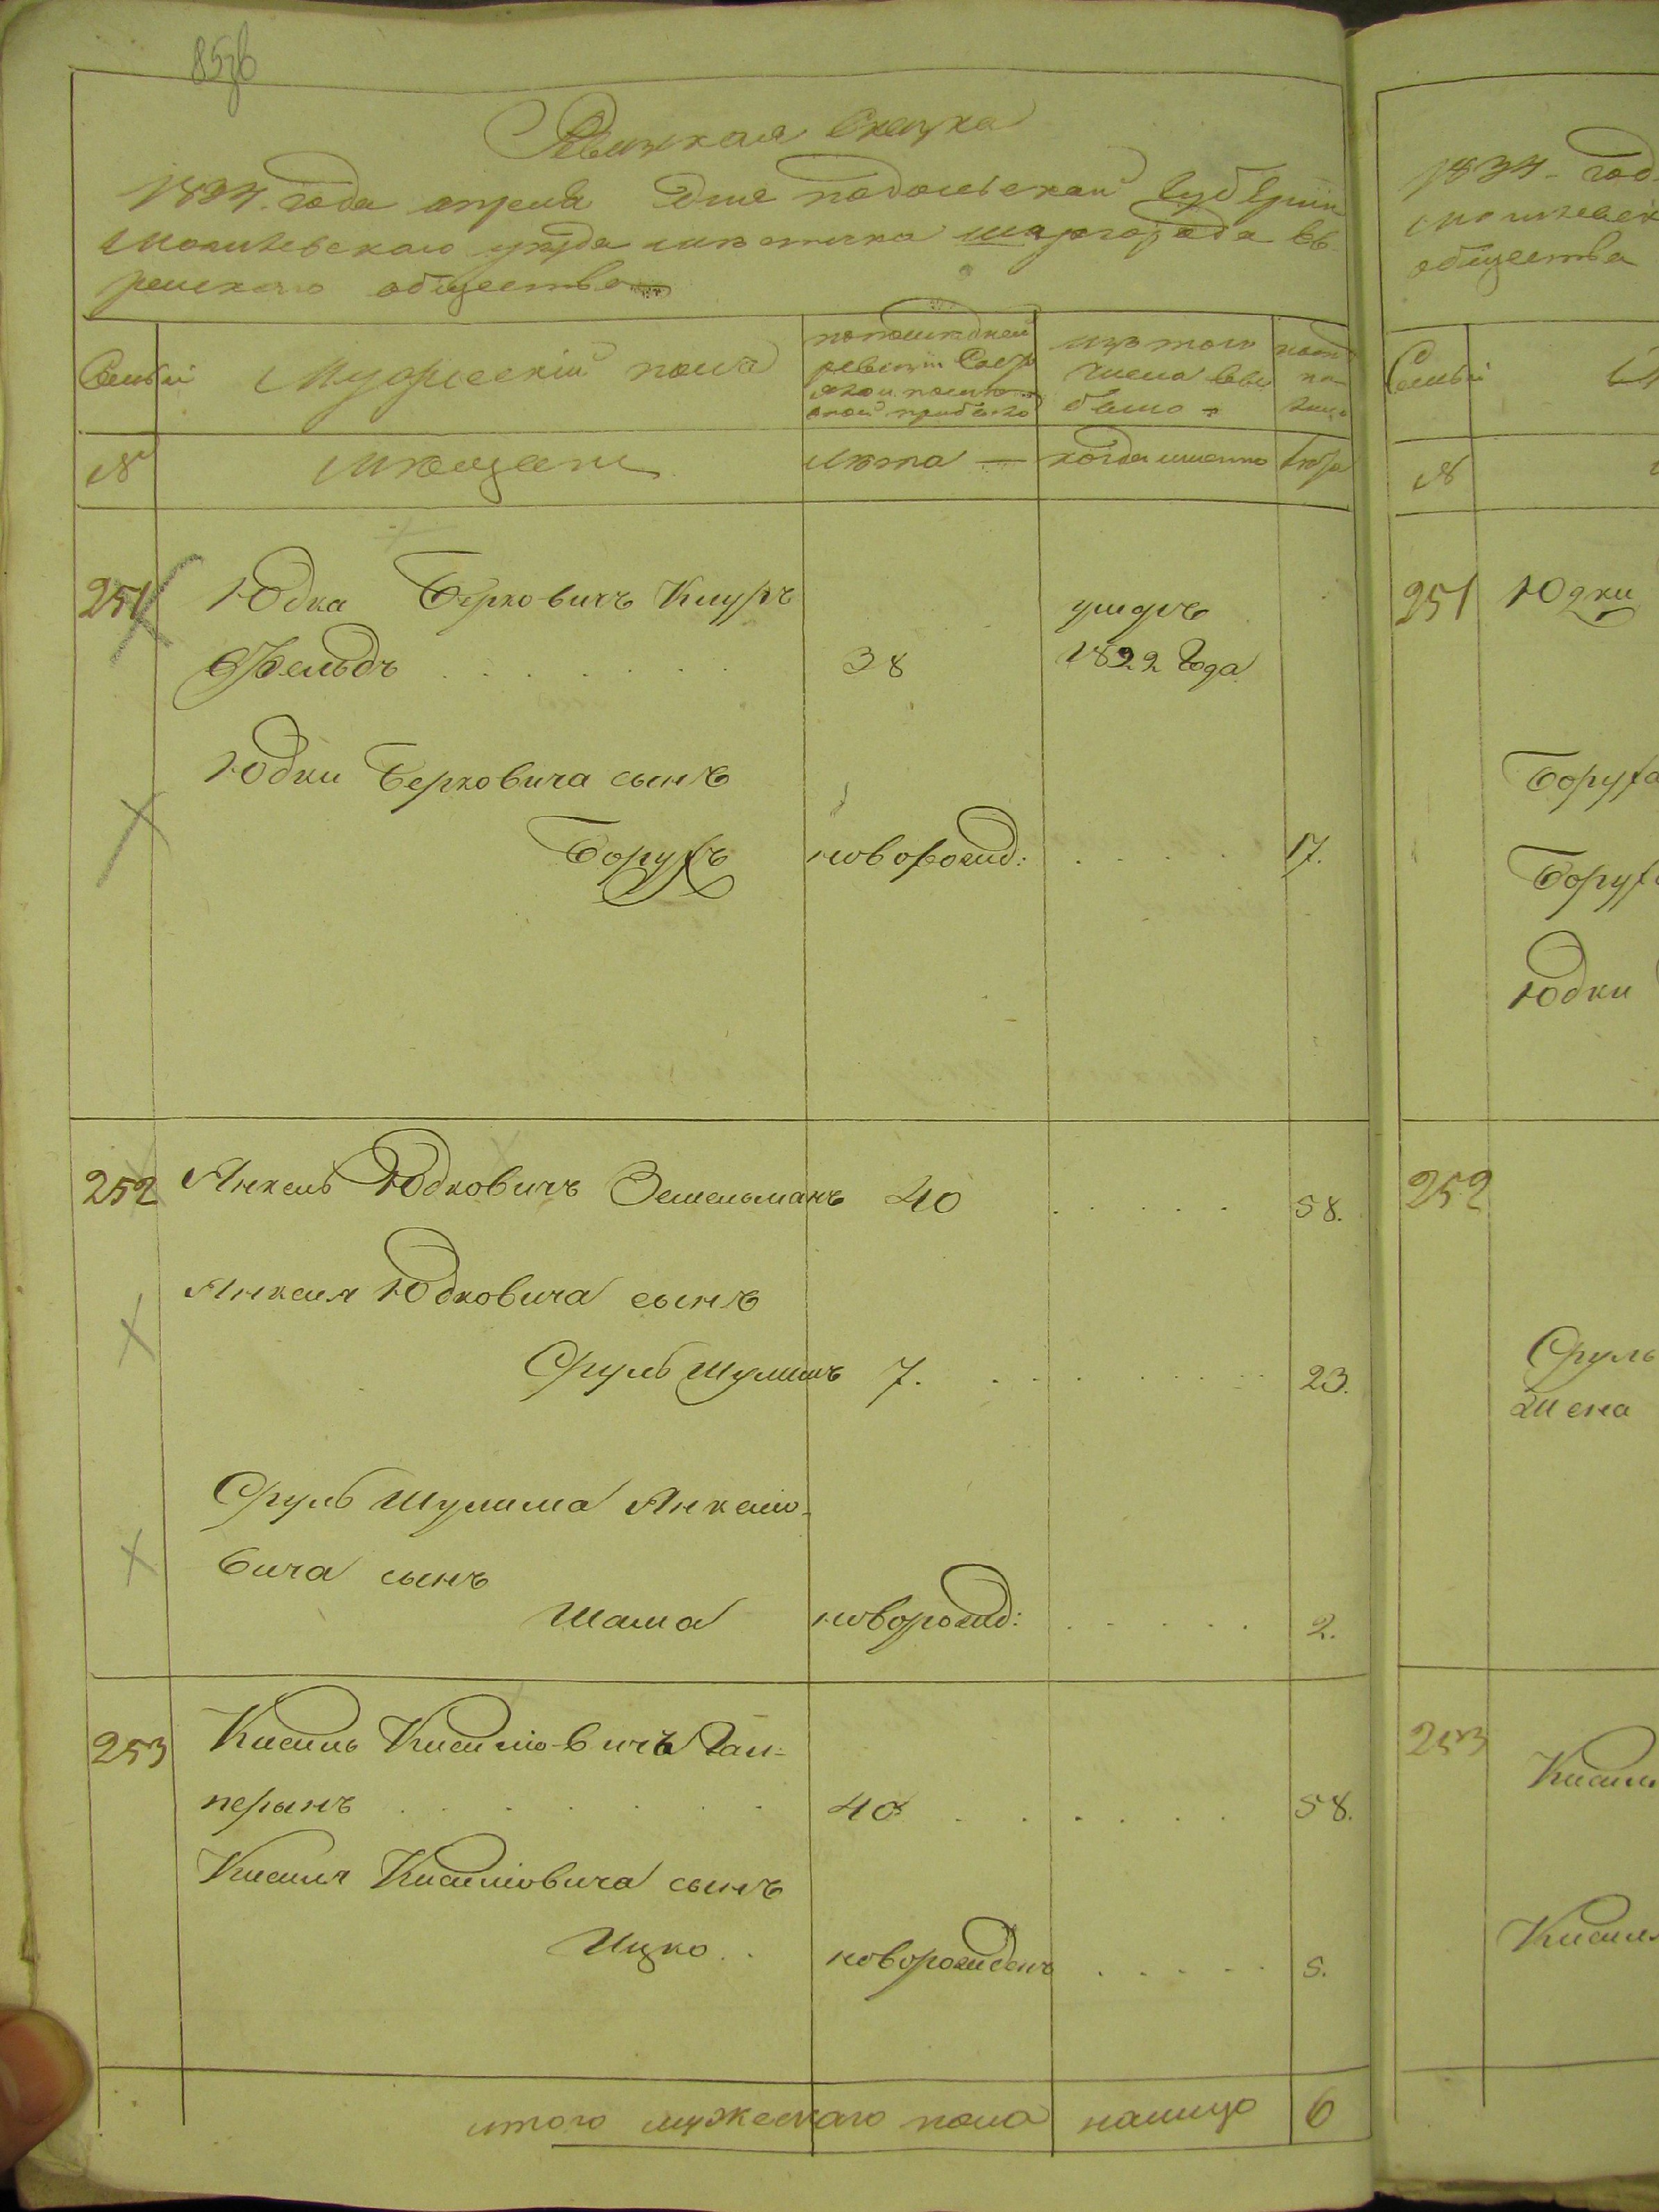 857об
Ревизская Сказка
1834. года апреля дня подольской губернии
Могилевского уезда местечка шаргорода ев-
рейского общества
Семьи
Мужеский полъ
по последней
ревизии состо
яло и после
оной прибыло
изъ того
числа вы
было
ныне
на
лицо
№
Мещане
лета —
когда именно
лета
251
Юдка Берковичъ Кнуръ
Фельдъ . . . . . . 38
умеръ
1822 года
Юдки Берковича сынъ
Борухъ новорожд: . . . . 17.
252 Янкель Юдковичъ Земельманъ 40 . . . . . 58.
Янкеля Юдковича сынъ
Сруль Шулимъ 7. . . . . . . . 23.
Сруль Шулима Янкелю-
вича сынъ
Шама новорожд: . . . . . 2.
253 Кисиль Кисилювичъ Гал-
перынъ . . . . . . 40 . . . . . . 58.
Кисиля Кисилювича сынъ
Ицко . . новорожденъ . . . . . 5.
итого мужескаго пола налицо 6
1834 - год
могилевск
общества
Семьи
№
251 Юдки
Боруха
Борух
Юдки
252
Сруль
жена
253
Кисил
Кисил